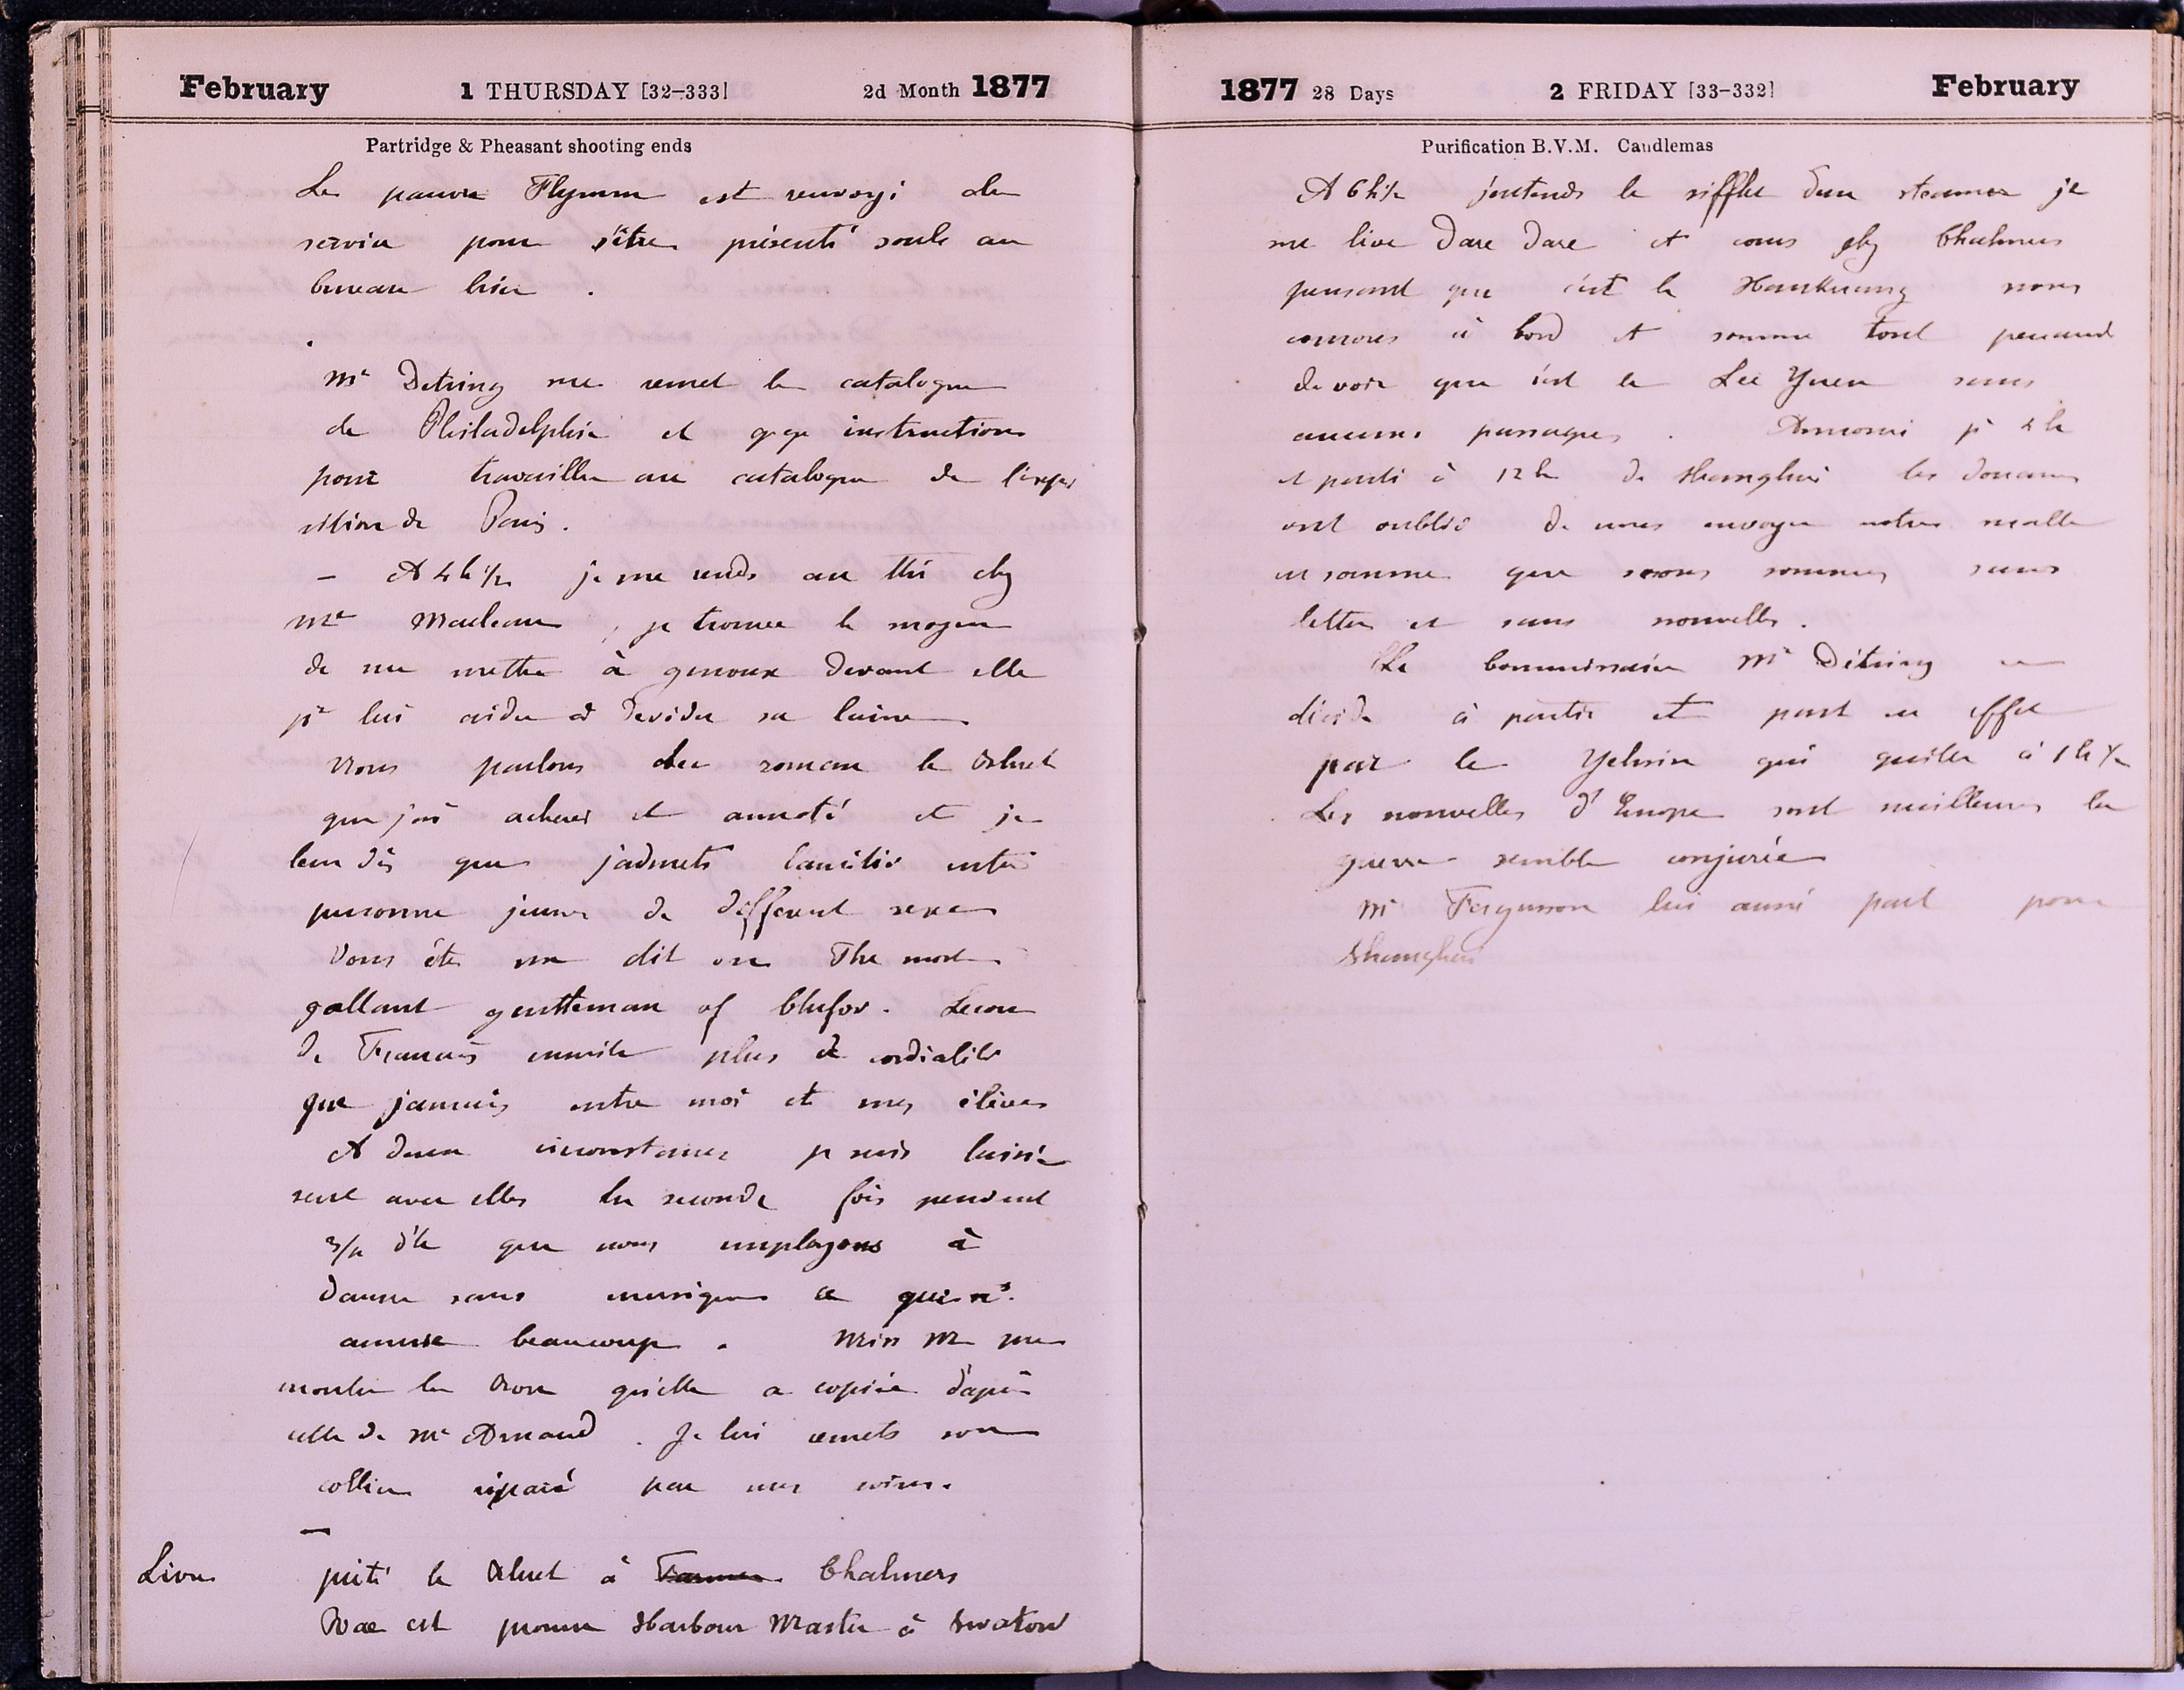 February 1 THURSDAY [32-333] 2d Month 1877
Partridge & Pheasant shooting ends
Le pauvre Flymm est renvoyé du
service pour s'être présenté soule au
bureau hier .
Mr Detring me remet le catalogue
de Philadelphie et qq instructions
pour travailler au catalogue de l'expo
sition de Paris .
— A 4 h ½ je me rends au thé chez
Me Macleane , je trouve le moyen
de me mettre à genoux devant elle
je lui aide à devider sa laine
Nous parlons du roman le
que j'ai achevé et annoté et je
leur dis que j'admets l'amitié entre
personne jeunes de different sexe
Vous êtes me dit on The most
gallant gentleman of Chefoo . Lecon
de Francais ensuite plus de cordialité
que jamais entre moi et mes élèves
A deux circonstances je suis laissé
seul avec elles la seconde fois pendant
3/4 d'h que nous employons à
danser sans musique ce qui n's
amuse beaucoup . Miss M me
montre la Rose qu'elle a copiée d'après
celle de Me Arnaud . Je lui remets son
collier réparé par mes soins .
—
Livre preté le à Chalmers
Rae est promu Harbour Master à Swatow
1877 28 Days 2 FRIDAY [33-332] February
Purification B.V.M. Candlemas
A 6 h ½ j'entends le sifflet d'un steamer je
me lève dare dare et cours chez Chalmers
pensant que c'est le Hankwang nous
courons à bord et somme tout penaud
de voir que c'est le Lee Yuen sans
aucuns passagers . Annoncé p 4 h
et parti à 12 h de Shanghai les douanes
ont oublié de nous envoyer notre malle
en somme que nous sommes sans
lettres et sans nouvelles .
Le Commissaire Mr Détring se
décide à partir et part en effet
par le Yehsin qui quitte à 1 h ½
Les nouvelles d'Europe sont meilleures la
guerre semble conjurée
Mr Fergusson lui aussi part pour
Shanghai